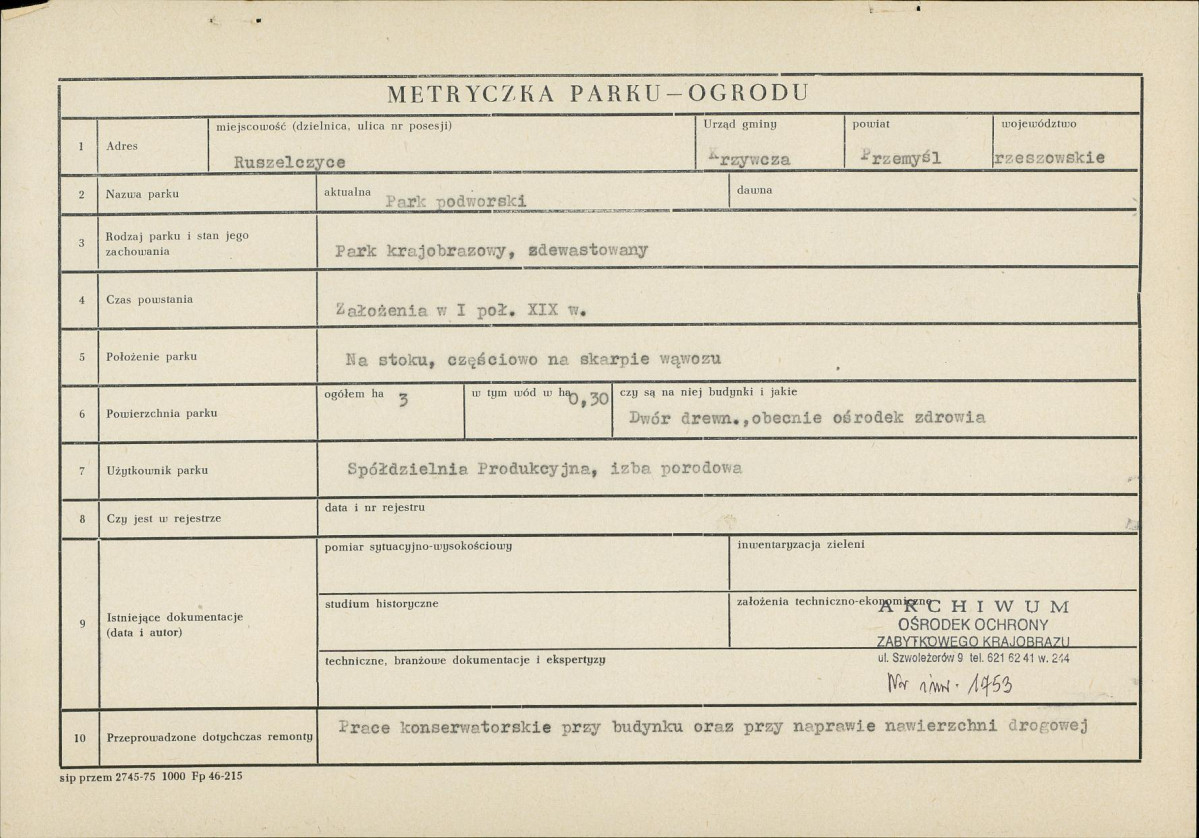 METRYCZKA PARKU—OGRODU
1 Adres
miejscowość (dzielnica, ulica nr posesji)
Ruszelczyce
Urząd gminy
Krzywcza
powiat
Przemyśl
województwo
rzeszowskie
2 Nazwa parku
aktualna
Park podworski
dawna
3 Rodzaj parku i stan jego
zachowania
Park krajobrazowy, zdewastowany
4 Czas powstania
Założenia w I poł. XIX w.
5 Położenie parku
Na stoku, częściowo na skarpie wąwozu
6 Powierzchnia parku
ogółem ha
3
w tym wód w ha
0,30
czy są na niej budynki i jakie
Dwór drewn.,obecnie ośrodek zdrowia
7 Użytkownik parku
Spółdzielnia Produkcyjna, izba porodowa
8 Czy jest w rejestrze
data i nr rejestru
9 Istniejące dokumentacje
(data i autor)
pomiar sytuacyjno-wysokościowy
inwentaryzacja zieleni
studium historyczne
założenia techniczno-ekonomiczne
techniczne, branżowe dokumentacje i ekspertyzy
ARCHIWUM
OŚRODEK OCHRONY
ZABYTKOWEGO KRAJOBRAZU
ul. Szwoleżerów 9 tel. 621 62 41 w. 244
Nr inw. 1753
10 Przeprowadzone dotychczas remonty
Prace konserwatorskie przy budynku oraz przy naprawie nawierzchni drogowej
sip przem 2745-75 1000 Fp 46-215